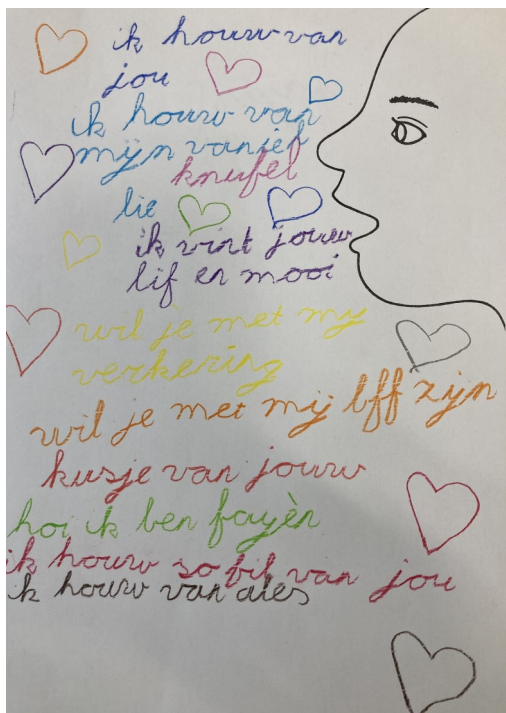 ik houw van
jou
ik houw van
mijn vanief
knufel
lie
ik vint jouw
lif en mooi
wil je met my
verkering
wil je met mij bff zijn
kusje van jouw
hoi ik ben fayèn
ik houw so fil van jou
ik houw van ales